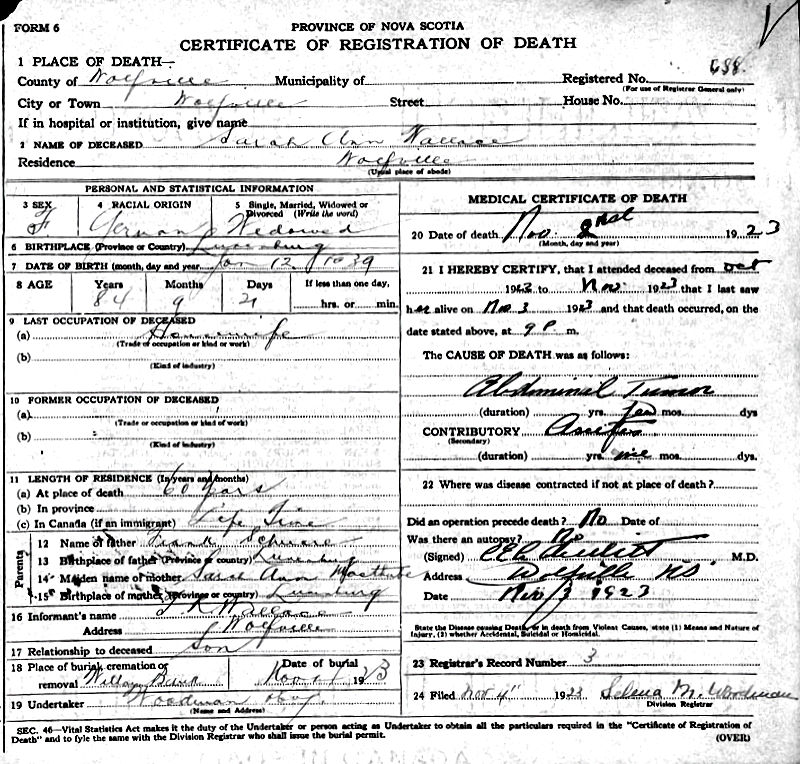 FORM 6
PROVINCE OF NOVA SCOTIA
CERTIFICATE OF REGISTRATION OF DEATH
1 PLACE OF DEATH—
688
County of Wolfville Municipality of Registered No.
(For use of Registrar General only)
City or Town Wolfville Street House No.
If in hospital or institution, give name
2 NAME OF DECEASED Sarah Ann Wallace
Residence Wolfville
(Usual place of abode)
PERSONAL AND STATISTICAL INFORMATION
3 SEX 4 RACIAL ORIGIN 5 Single, Married, Widowed or Divorced (Write the word)
F German Widowed
6 BIRTHPLACE (Province or Country) Lunenburg
7 DATE OF BIRTH (month, day and year) Jan 12 1839
8 AGE Years Months Days If less than one day,
84 9 21 hrs. or min.
9 LAST OCCUPATION OF DECEASED
(a) Housewife
(Trade or occupation or kind or work)
(b)
(Kind of industry)
10 FORMER OCCUPATION OF DECEASED
(a)
(Trade or occupation or kind of work)
(b)
(Kind of industry)
11 LENGTH OF RESIDENCE (In years and months)
(a) At place of death 60 years
(b) In province
(c) In Canada (if an immigrant) Life Time
Parents
12 Name of father Frank
13 Birthplace of father (Province or country) Lunenburg
14 Maiden name of mother Sarah Ann
15 Birthplace of mother (Province or country) Lunenburg
16 Informant's name Wallace
Address Wolfville
17 Relationship to deceased son
18 Place of burial, cremation or removal Willow Bank Date of burial Nov 1923
19 Undertaker Woodman
(Name and Address)
MEDICAL CERTIFICATE OF DEATH
20 Date of death Nov. 2nd 1923
(Month, day and year)
21 I HEREBY CERTIFY, that I attended deceased from Oct
1923 to Nov. 1923 that I last saw
her alive on Nov 3 1923 and that death occurred, on the
date stated above, at 9 P m.
The CAUSE OF DEATH was as follows:
Abdominal Tumor
(duration) yrs. few mos. dys
CONTRIBUTORY Ascites
(Secondary)
(duration) yrs. one mos. dys.
22 Where was disease contracted if not at place of death?
Did an operation precede death? No Date of
Was there an autopsy? No
(Signed) M.D.
Address Wolfville NS
Date Nov 3 1923
State the Disease causing Death, or in death from Violent Causes, state (1) Means and Nature of Injury, (2) whether Accidental, Suicidal or Homicidal.
23 Registrar's Record Number 3
24 Filed Nov 4" 1923 Selena M. Woodman
Division Registrar
SEC. 46—Vital Statistics Act makes it the duty of the Undertaker or person acting as Undertaker to obtain all the particulars required in the "Certificate of Registration of
Death" and to fyle the same with the Division Registrar who shall issue the burial permit. (OVER)